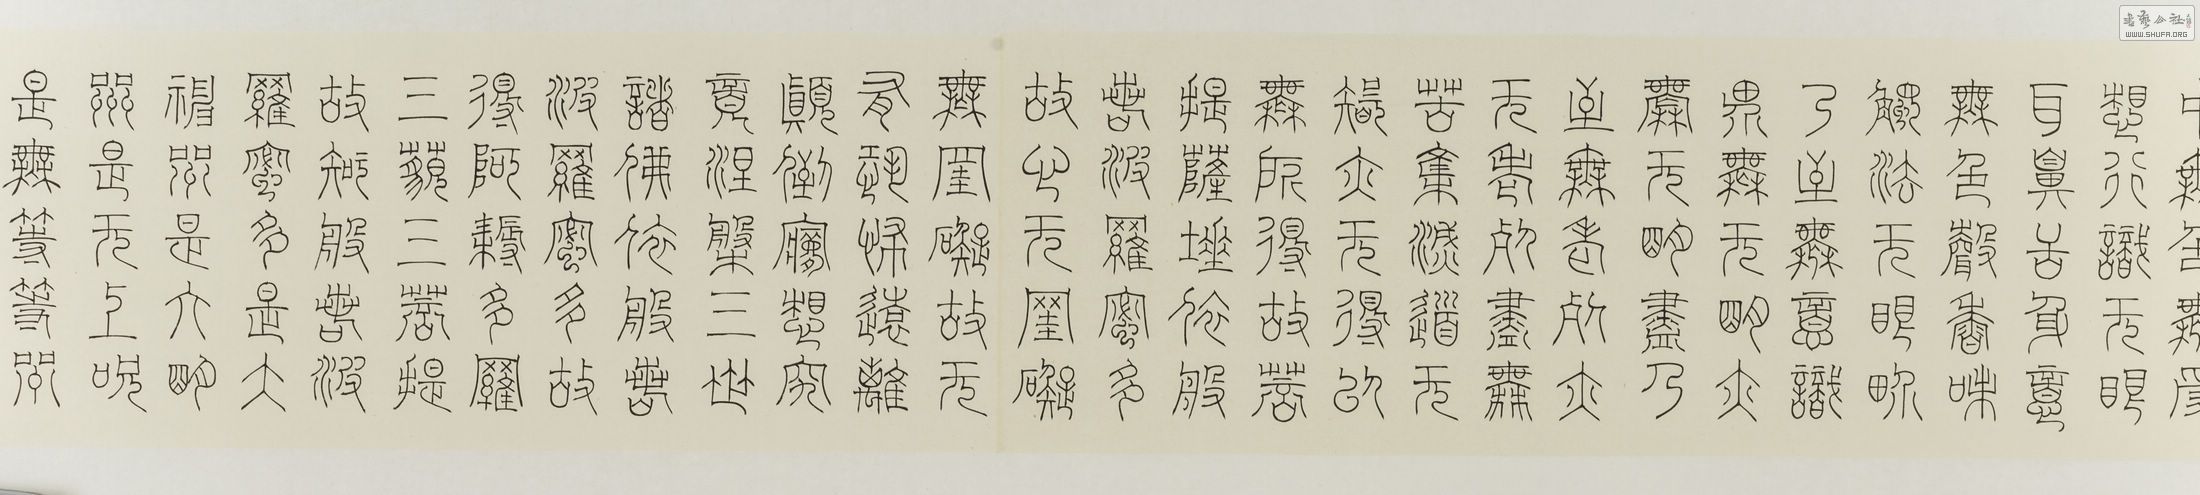 中無色無受
想行識无眼
耳鼻舌身意
無色聲香味
觸法无眼界
乃至無意識
界無无明亦
無无明盡乃
至無老死亦
无老死盡無
苦集滅道无
智亦无得以
無所得故菩
提薩埵依般
若波羅蜜多
故心无罣礙
無罣礙故无
有恐怖遠離
顛倒夢想究
竟涅槃三世
諸佛依般若
波羅蜜多故
得阿耨多羅
三藐三菩提
故知般若波
羅蜜多是大
神咒是大明
咒是无上咒
是無等等咒
書藝公社
WWW.SHUFA.ORG